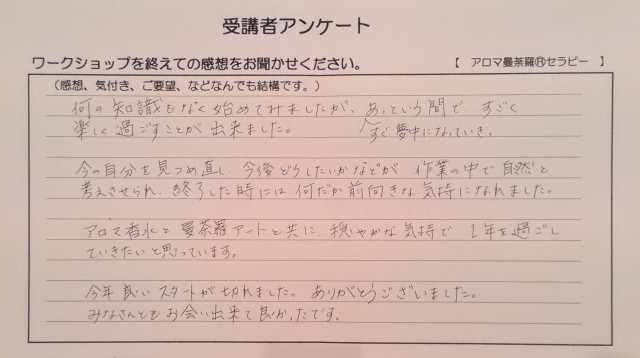 受講者アンケート
ワークショップを終えての感想をお聞かせください。
【 アロマ曼荼羅Ⓡセラピー 】
(感想、気付き、ご要望、などなんでも結構です。)
何の知識もなく始めてみましたが、あっという間で、すごく
楽しく過ごすことが出来ました。
すぐ夢中になっていき、
今の自分を見つめ直し、今後どうしたいかなどが 作業の中で自然と
考えさせられ、終了した時には何だか前向きな気持になれました。
アロマ香水と曼荼羅アートと共に、穏やかな気持で 1年を過ごし
ていきたいと思っています。
今年良いスタートが切れました。ありがとうございました。
みなさんともお会い出来て良かったです。